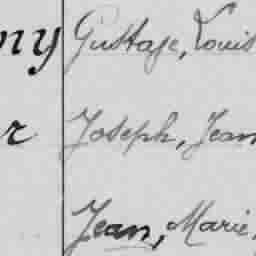 ny Gustave, Louis
r Joseph, Jean
Jean, Marie,